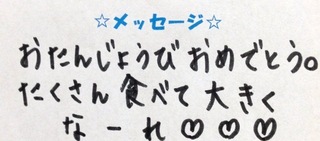 ☆メッセージ☆
おたんじょうびおめでとう。
たくさん食べて大きく
なーれ♡♡♡